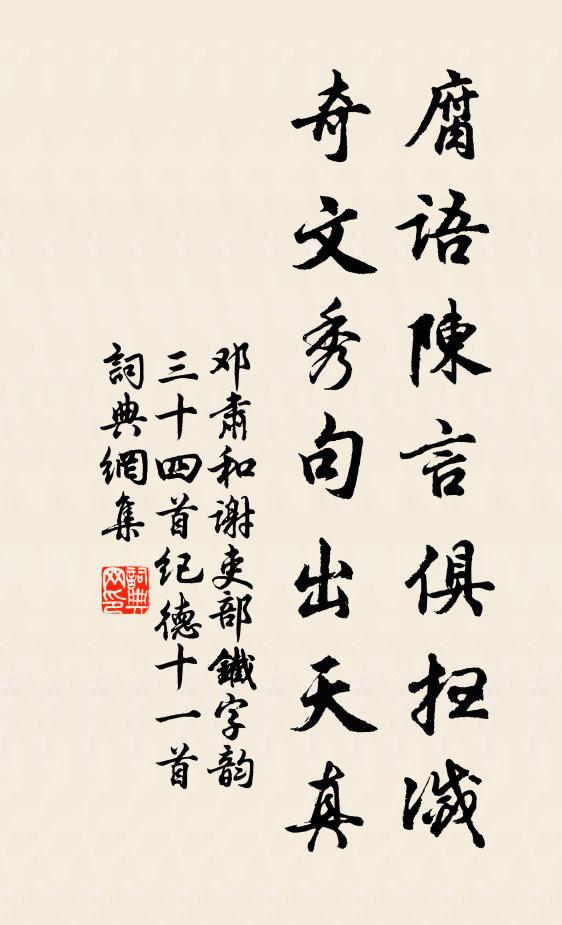 腐語陳言俱扫滅
奇文秀句出天真
邓肃和谢吏部鐵字韵
三十四首纪德十一首
詞典網集
詞典網印